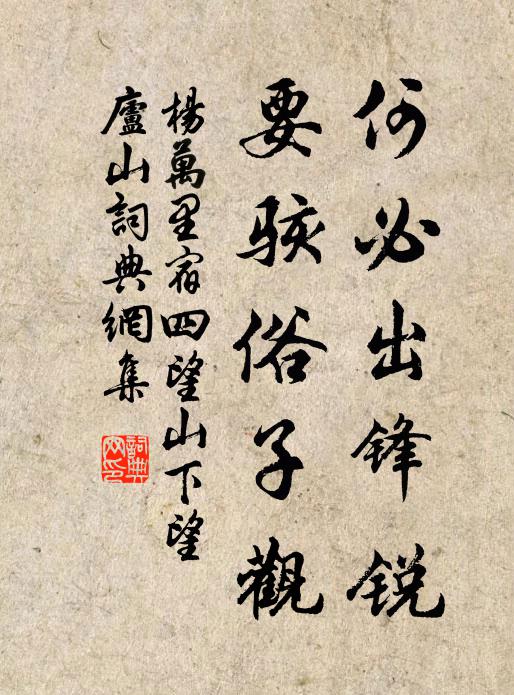 何必出锋锐
要骇俗子觀
楊萬里宿四望山下望
廬山詞典網集
詞典网印